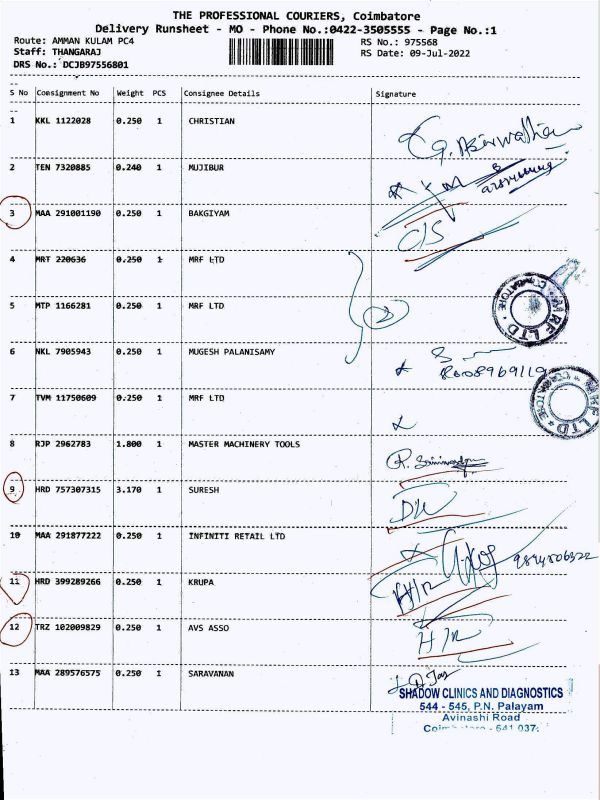 THE PROFESSIONAL COURIERS, Coimbatore
Delivery Runsheet - MO - Phone No.:0422-3505555 - Page No.:1
Route: AMMAN KULAM PC4 RS No.: 975568
Staff: THANGARAJ RS Date: 09-Jul-2022
DRS No.: DCJB97556801
S No Consignment No Weight PCS Consignee Details Signature
1 KKL 1122028 0.250 1 CHRISTIAN
2 TEN 7320885 0.240 1 MUJIBUR
3 MAA 291001190 0.250 1 BAKGIYAM
C/S
4 MRT 220636 0.250 1 MRF LTD
5 MTP 1166281 0.250 1 MRF LTD
2
MRF LTD * COIMBATORE *
6 NKL 7905943 0.250 1 MUGESH PALANISAMY
7 TVM 11750609 0.250 1 MRF LTD
MRF LTD
8 RJP 2962783 1.800 1 MASTER MACHINERY TOOLS
9 HRD 757307315 3.170 1 SURESH
10 MAA 291877222 0.250 1 INFINITI RETAIL LTD
11 HRD 399289266 0.250 1 KRUPA
12 TRZ 102009829 0.250 1 AVS ASSO
13 MAA 289576575 0.250 1 SARAVANAN
SHADOW CLINICS AND DIAGNOSTICS
544 - 545, P.N. Palayam
Avinashi Road